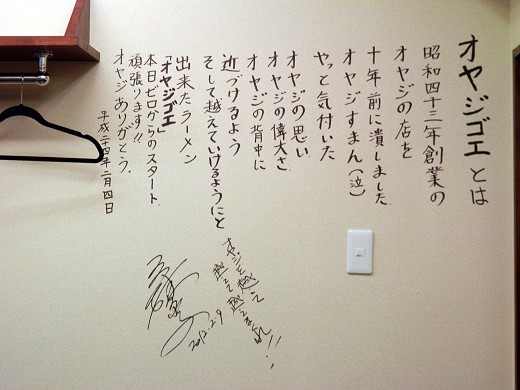 オヤジゴエとは
昭和四十三年創業の
オヤジの店を
十年前に潰しました
オヤジすまん(泣)
やっと気付いた
オヤジの思い
オヤジの偉大さ
オヤジの背中に
近づけるよう
そして越えていけるようにと
出来たラーメン
「オヤジゴエ」
本日ゼロからのスタート
頑張ります!!
オヤジありがとう。
平成二十四年二月四日
オヤジを越えて
越えて
2012.2.9